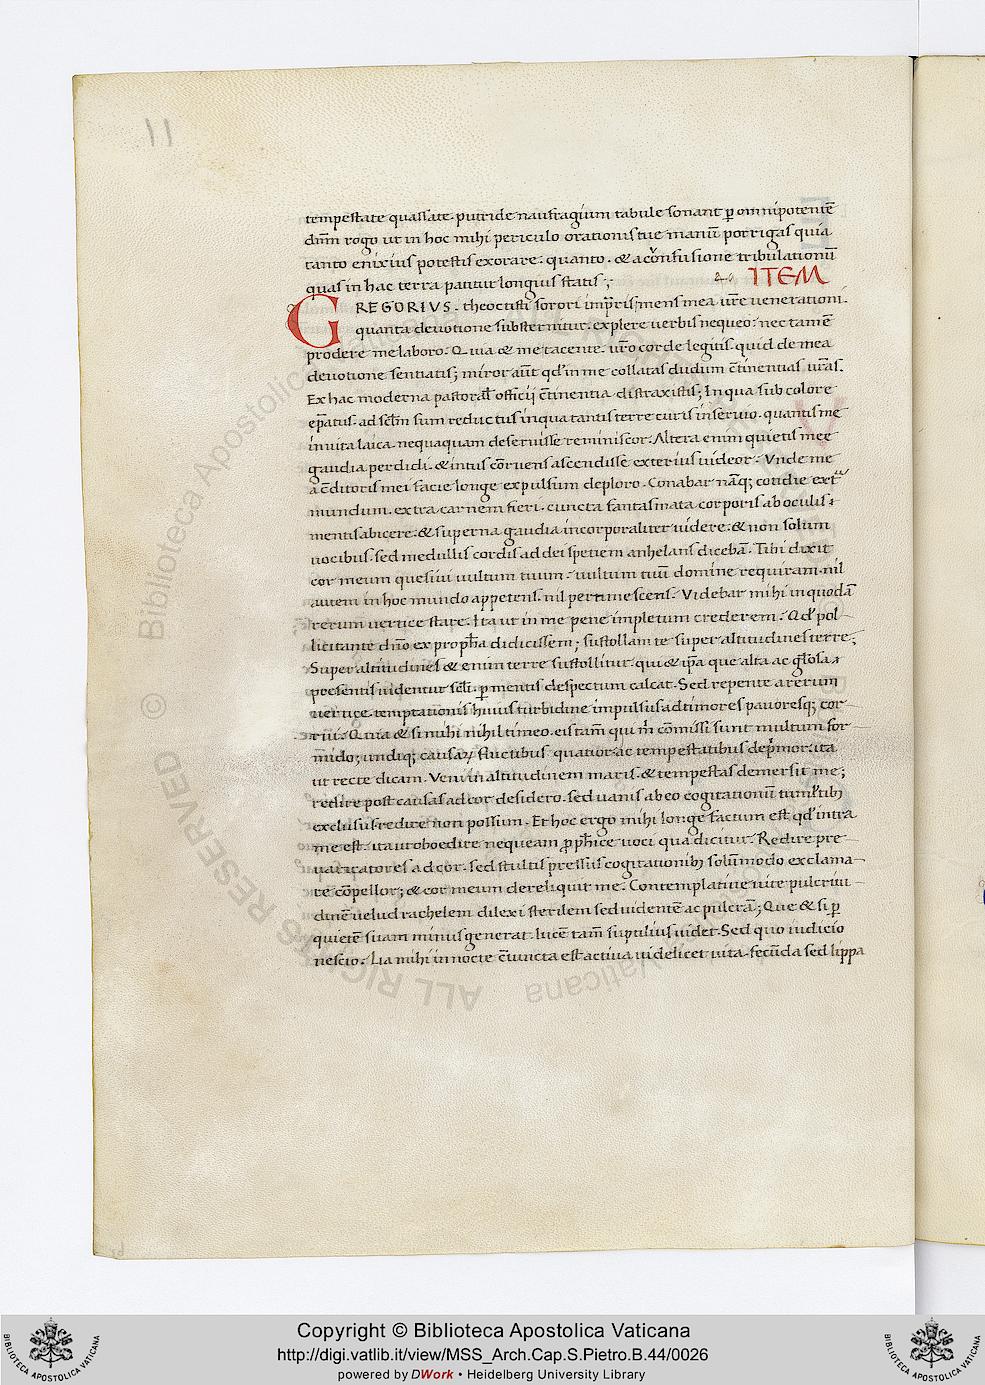 11
tempestate quassate. putride naufragium tabule sonant ꝑ omnipotentē
dn̄m rogo ut in hoc mihi periculo orationis tue manū porrigas quia
tanto enixius potestis exorare. quanto. & a confusione tribulationū
quas in hac terra patitur longius statis;
ITEM
GREGORIVS. theoctisti sorori imꝑris; mens mea ur̄e uenerationi.
quanta deuotione substernitur. explere uerbis nequeo. nec tamē
prodere me laboro. Quia & me tacente. ur̄o corde legitis. quid de mea
deuotione sentiatis; miror aūt qđ in me collatas dudum c̄tinentias ur̄as.
Ex hac moderna pastoral officij c̄tinentia distraxistis; In qua sub colore
ep̄atus. ad sclm̄ sum reductus in qua tantis terre curis inseruio. quantis me
in uita laica. nequaquam deseruisse reminiscor. Altera enim quietis mee
gaudia perdidi. & intus corruens ascendisse exterius uideor. Vnde me
a c̄ditoris mei facie longe expulsum deploro. Conabar nāq; cotidie ext
mundum. extra carnem fieri. cuncta fantasmata corporis ab oculis
mentis abicere. & superna gaudia incorporaliter uidere. & non solum
uocibus. sed medullis cordis ad dei spetiem anhelans dicebā. Tibi dixit
cor meum quesiui uultum tuum. uultum tuū domine requiram. nil
autem in hoc mundo appetens. nil pertimescens. Videbar mihi in quodā
rerum uertice stare. Ita ut in me pene impletum crederem. Qđ pol-
licitante dn̄o ex proph̄a didicissem; sustollam te super altitudines terre;
Super altitudines & enim terre sustollitur. qui & ip̄a que alta ac gl̄osa
presentis uidentur scl̄i. ꝑ mentis despectum calcat. Sed repente a rerum
uertice. temptationis huius turbidine impulsus ad timores pauoresq; cor-
rui. Quia & si mihi nihil timeo. eis tam̄ qui m̄ com̄issi sunt multum for-
mido; undiq; causaꝝ fluctibus quatior. ac tempestatibus dep̄mor. ita
ut recte dicam. Veni in altitudinem maris. & tempestas demersit me;
redire post causas ad cor desidero. sed uanis ab eo cogitationū tumltib;
exclusus redire non possum. Et hoc ergo mihi longe factum est qđ intra
me est. ita ut oboedire nequeam ꝓph̄ice uoci qua dicitur. Redite pre-
uaricatores ad cor. sed stultis pressus cogitationib; solum̄odo exclama-
re com̄pellor; & cor meum dereliquit me. Contemplatiue uite pulcritu-
dinē uelud rachelem dilexi sterilem sed uidentē ac pulcrā; Que & si ꝑ
quietē suam minus generat. lucē tam̄ suptilius uidet. Sed quo iudicio
nescio. Lia mihi in nocte c̄iuncta est. actiua uidelicet uita. fecūda sed lippa
ALL RIGHTS RESERVED © Biblioteca Apostolica Vaticana
BIBLIOTECA APOSTOLICA VATICANA
Copyright © Biblioteca Apostolica Vaticana
http://digi.vatlib.it/view/MSS_Arch.Cap.S.Pietro.B.44/0026
powered by DWork • Heidelberg University Library
BIBLIOTECA APOSTOLICA VATICANA